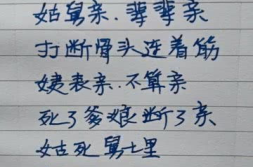 姑舅亲.辈辈亲
打断骨头连着筋
姨表亲.不算亲
死了爹娘断了亲
姑死舅土里